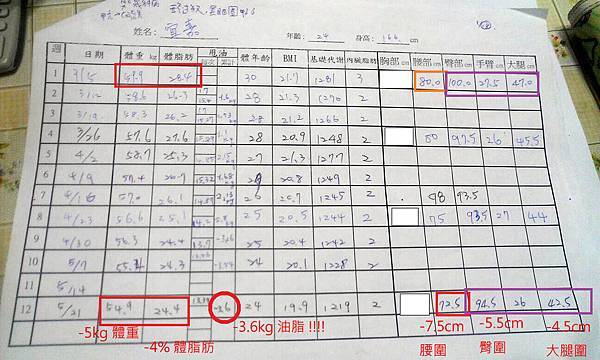 姓名: 宜嘉 年齡: 24 身高: 166 cm
週 日期 體重 kg 體脂肪 甩油 每次 累計 體年齡 BMI 基礎代謝 內臟脂肪 胸部 cm 腰部 cm 臀部 cm 手臂 cm 大腿 cm
1 3/5 59.9 28.4 30 21.7 1281 3 80.0 100.0 27.5 47.0
2 3/12 58.6 26.3 28 21.3 1270 2
3 3/19 58.3 26.2 28 21.2 1266 2
4 3/26 57.6 27.6 28 20.9 1248 2 80 97.5 26 45.5
5 4/2 58.7 25.3 27 21.3 1277 2
6 4/9 57.4 20.8 1249 2
7 4/16 57.0 26.1 26 20.7 1245 2 78 93.5
8 4/23 56.6 25.1 25 20.5 1244 2 75 93.5 27 44
9 4/30 56.3 24.4 13.7 25 20.4 1242 2
10 5/7 24.3 24 20.1 1228 2
11 5/14
12 5/21 54.9 24.4 -3.6 24 19.9 1219 2 72.5 94.5 26 42.5
-5kg 體重
-4% 體脂肪
-3.6kg 油脂 !!!!
-7.5cm 腰圍
-5.5cm 臀圍
-4.5cm 大腿圍